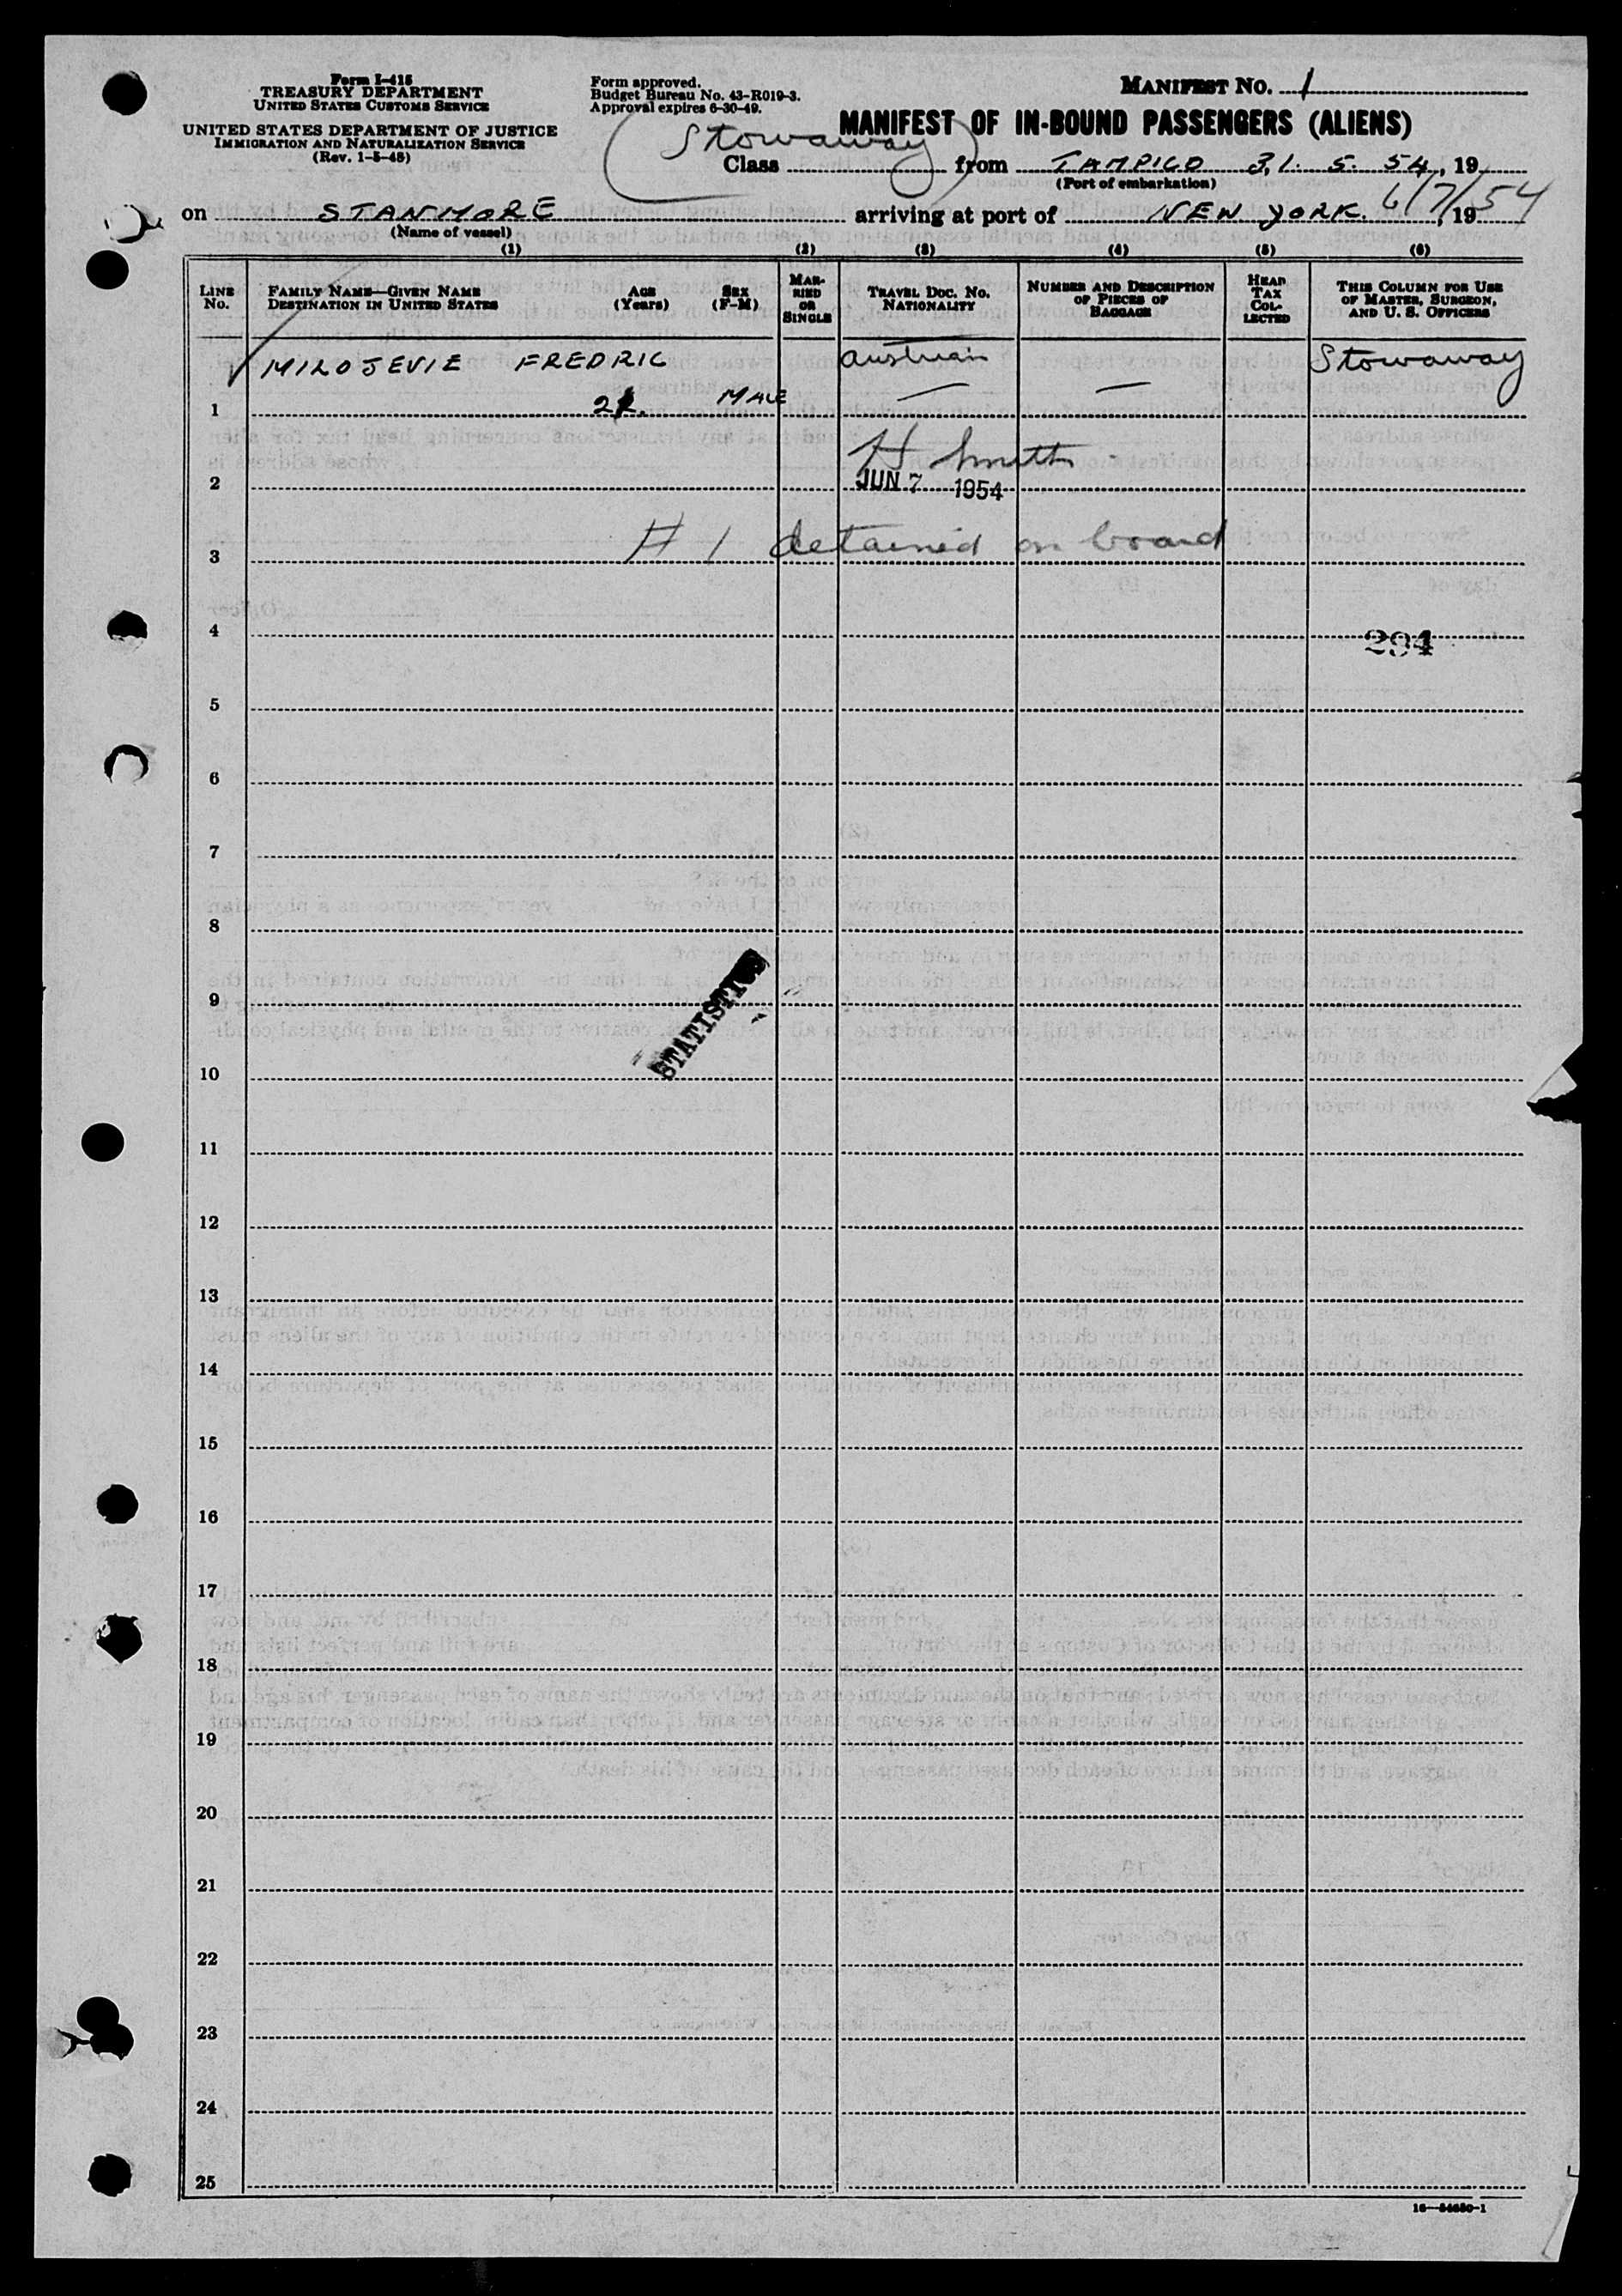 Form I-415
TREASURY DEPARTMENT
UNITED STATES CUSTOMS SERVICE
UNITED STATES DEPARTMENT OF JUSTICE
IMMIGRATION AND NATURALIZATION SERVICE
(Rev. 1-5-48)
Form approved.
Budget Bureau No. 43-R019-3.
Approval expires 6-30-49.
MANIFEST NO. 1
MANIFEST OF IN-BOUND PASSENGERS (ALIENS)
(Stowaway)
Class from TAMPICO 31. 5. 54, 19
(Port of embarkation)
on STANMORE arriving at port of NEW YORK. 6/7/54, 19
(Name of vessel)
(1) (2) (3) (4) (5) (6)
LINE NO.
FAMILY NAME—GIVEN NAME
DESTINATION IN UNITED STATES
AGE (Years)
SEX (F-M)
MARRIED OR SINGLE
TRAVEL DOC. NO.
NATIONALITY
NUMBER AND DESCRIPTION OF PIECES OF BAGGAGE
HEAD TAX COLLECTED
THIS COLUMN FOR USE OF MASTER, SURGEON, AND U. S. OFFICERS
MILOJEVIE FREDRIC Austrian Stowaway
1 MALE — —
H Smith
2 JUN 7 1954
3 # 1 detained on board
4 294
5
6
7
8
9
STATISTICS
10
11
12
13
14
15
16
17
18
19
20
21
22
23
24
25